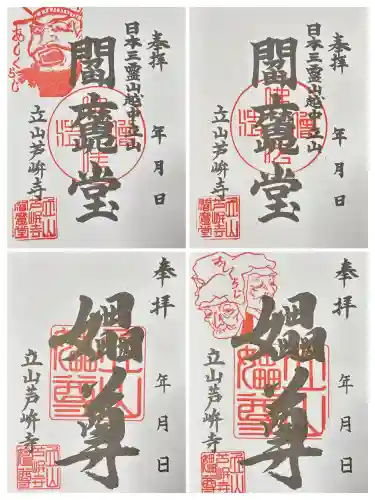 奉拝
日本三霊山越中立山
閻魔堂
年月日
立山芦峅寺
あしくらじ
立山
芦峅寺
閻魔堂
奉拝
日本三霊山越中立山
閻魔堂
年月日
立山芦峅寺
立山
芦峅寺
閻魔堂
奉拝
年月日
媼尊
立山芦峅寺
奉拝
年月日
媼尊
立山芦峅寺